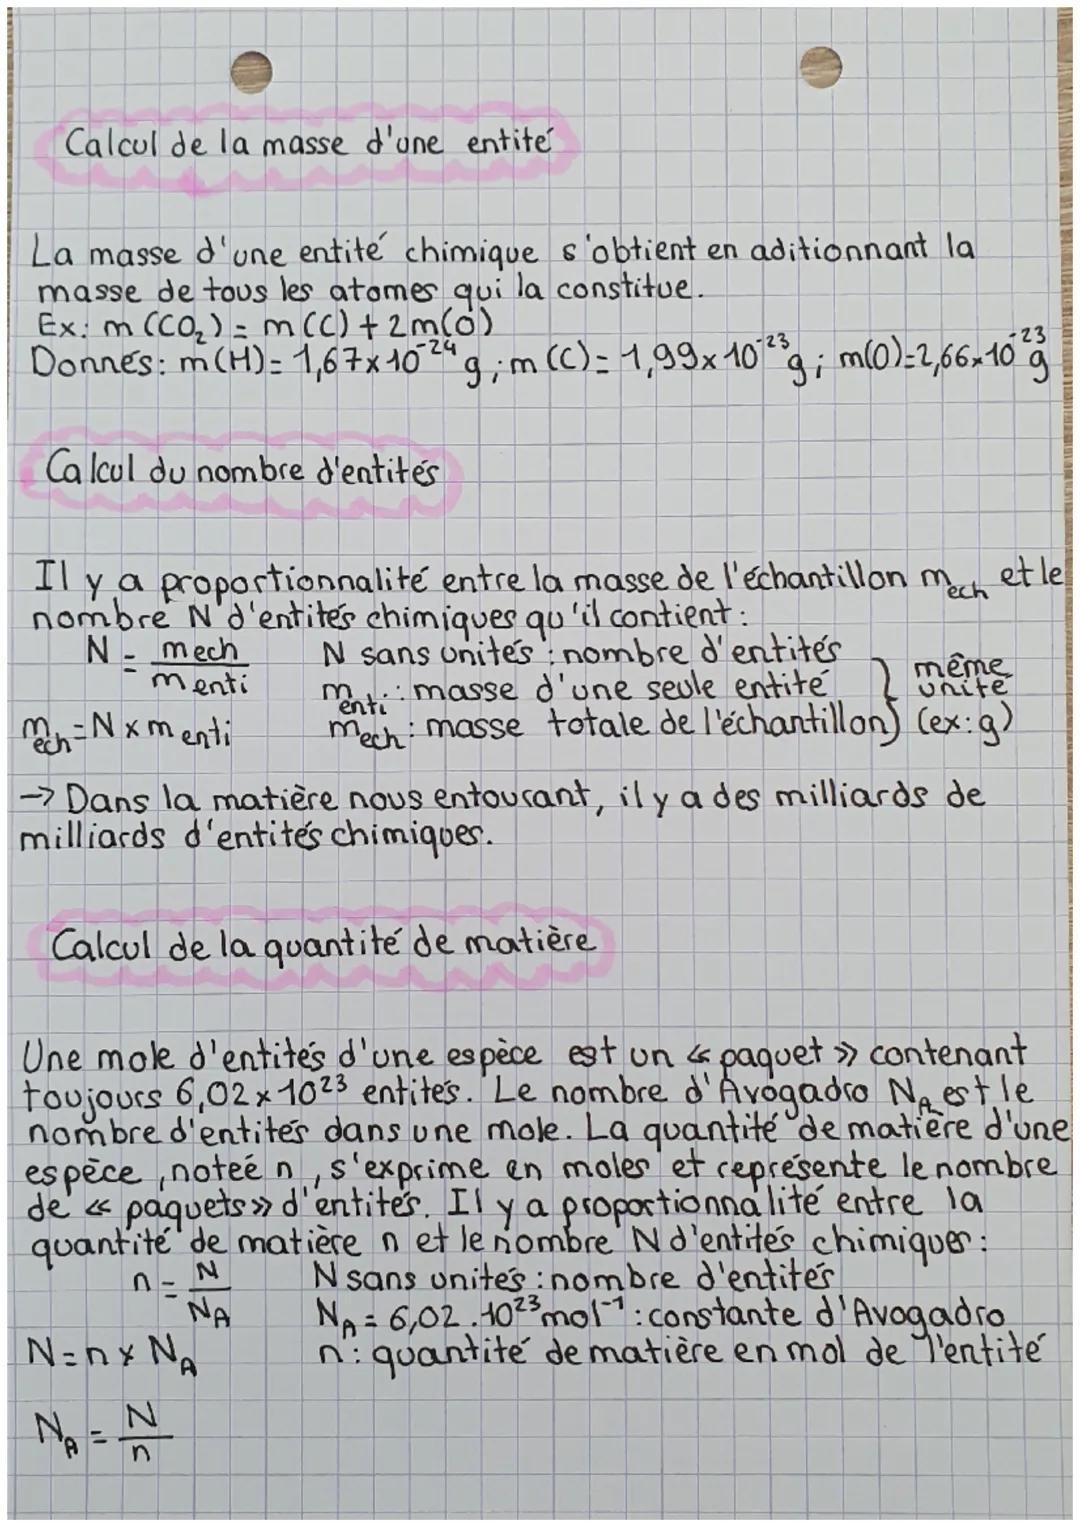 Calcul de la masse d'une entité
La masse d'une entité chimique s'obtient en aditionnant la
masse de tous les atomes qui la constitue.
Ex: m (CO₂) = m (C) + 2m(O)
Donnés: m(H)= 1,67x10⁻²⁴ g ; m (C)= 1,99x10⁻²³ g ; m(O)=2,66x10⁻²³ g
Calcul du nombre d'entités
Il y a proportionnalité entre la masse de l'échantillon m_ech et le
nombre N d'entités chimiques qu'il contient :
N = mech / m enti
N sans unités : nombre d'entités
m_enti : masse d'une seule entité } même unité
m_ech = N x m enti
m_ech : masse totale de l'échantillon } (ex: g)
→ Dans la matière nous entourant, il y a des milliards de
milliards d'entités chimiques.
Calcul de la quantité de matière
Une mole d'entités d'une espèce est un « paquet » contenant
toujours 6,02x10²³ entités. Le nombre d'Avogadro N_A est le
nombre d'entités dans une mole. La quantité de matière d'une
espèce, noteé n, s'exprime en moles et représente le nombre
de « paquets » d'entités. Il y a proportionnalité entre la
quantité de matière n et le nombre N d'entités chimiques :
n = N / N_A
N sans unités : nombre d'entités
N_A = 6,02.10²³ mol⁻¹ : constante d'Avogadro
N = n x N_A
n : quantité de matière en mol de l'entité
N_A = N / n